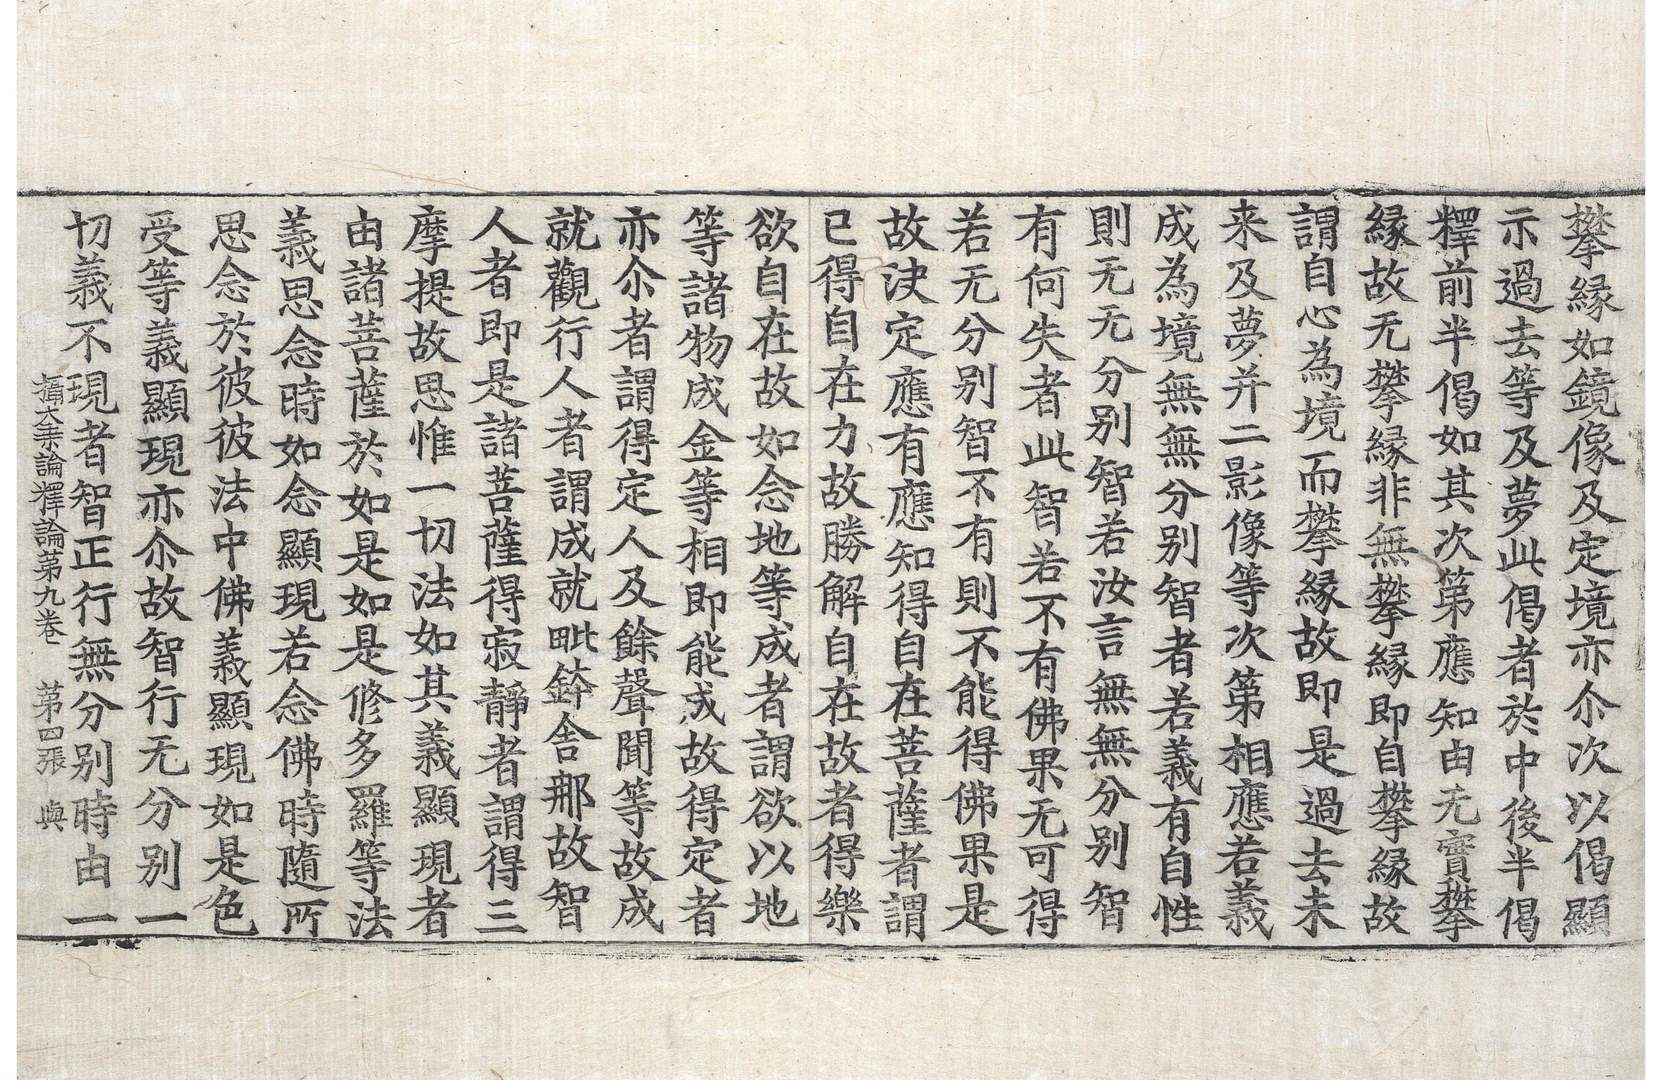 攀縁如鏡像及定境亦尒次以偈顯
示過去等及夢此偈者於中後半偈
釋前半偈如其次第應知由无實攀
縁故无攀縁非無攀縁即自攀縁故
謂自心為境而攀縁故即是過去未
来及夢并二影像等次第相應若義
成為境無無分別智者若義有自性
則无无分别智若汝言無無分别智
有何失者此智若不有佛果无可得
若无分别智不有則不能得佛果是
故决定應有應知得自在菩薩者謂
已得自在力故勝解自在故者得樂
欲自在故如念地等成者謂欲以地
等諸物成金等相即能成故得定者
亦尒者謂得定人及餘聲聞等故成
就觀行人者謂成就毗鉢舍那故智
人者即是諸菩薩得寂靜者謂得三
摩提故思惟一切法如其義顯現者
由諸菩薩於如是如是修多羅等法
義思念時如念顯現若念佛時隨所
思念於彼彼法中佛義顯現如是色
受等義顯現亦尒故智行无分别一
切義不現者智正行無分别時由一
攝大乗論釋論第九卷　第四張　與